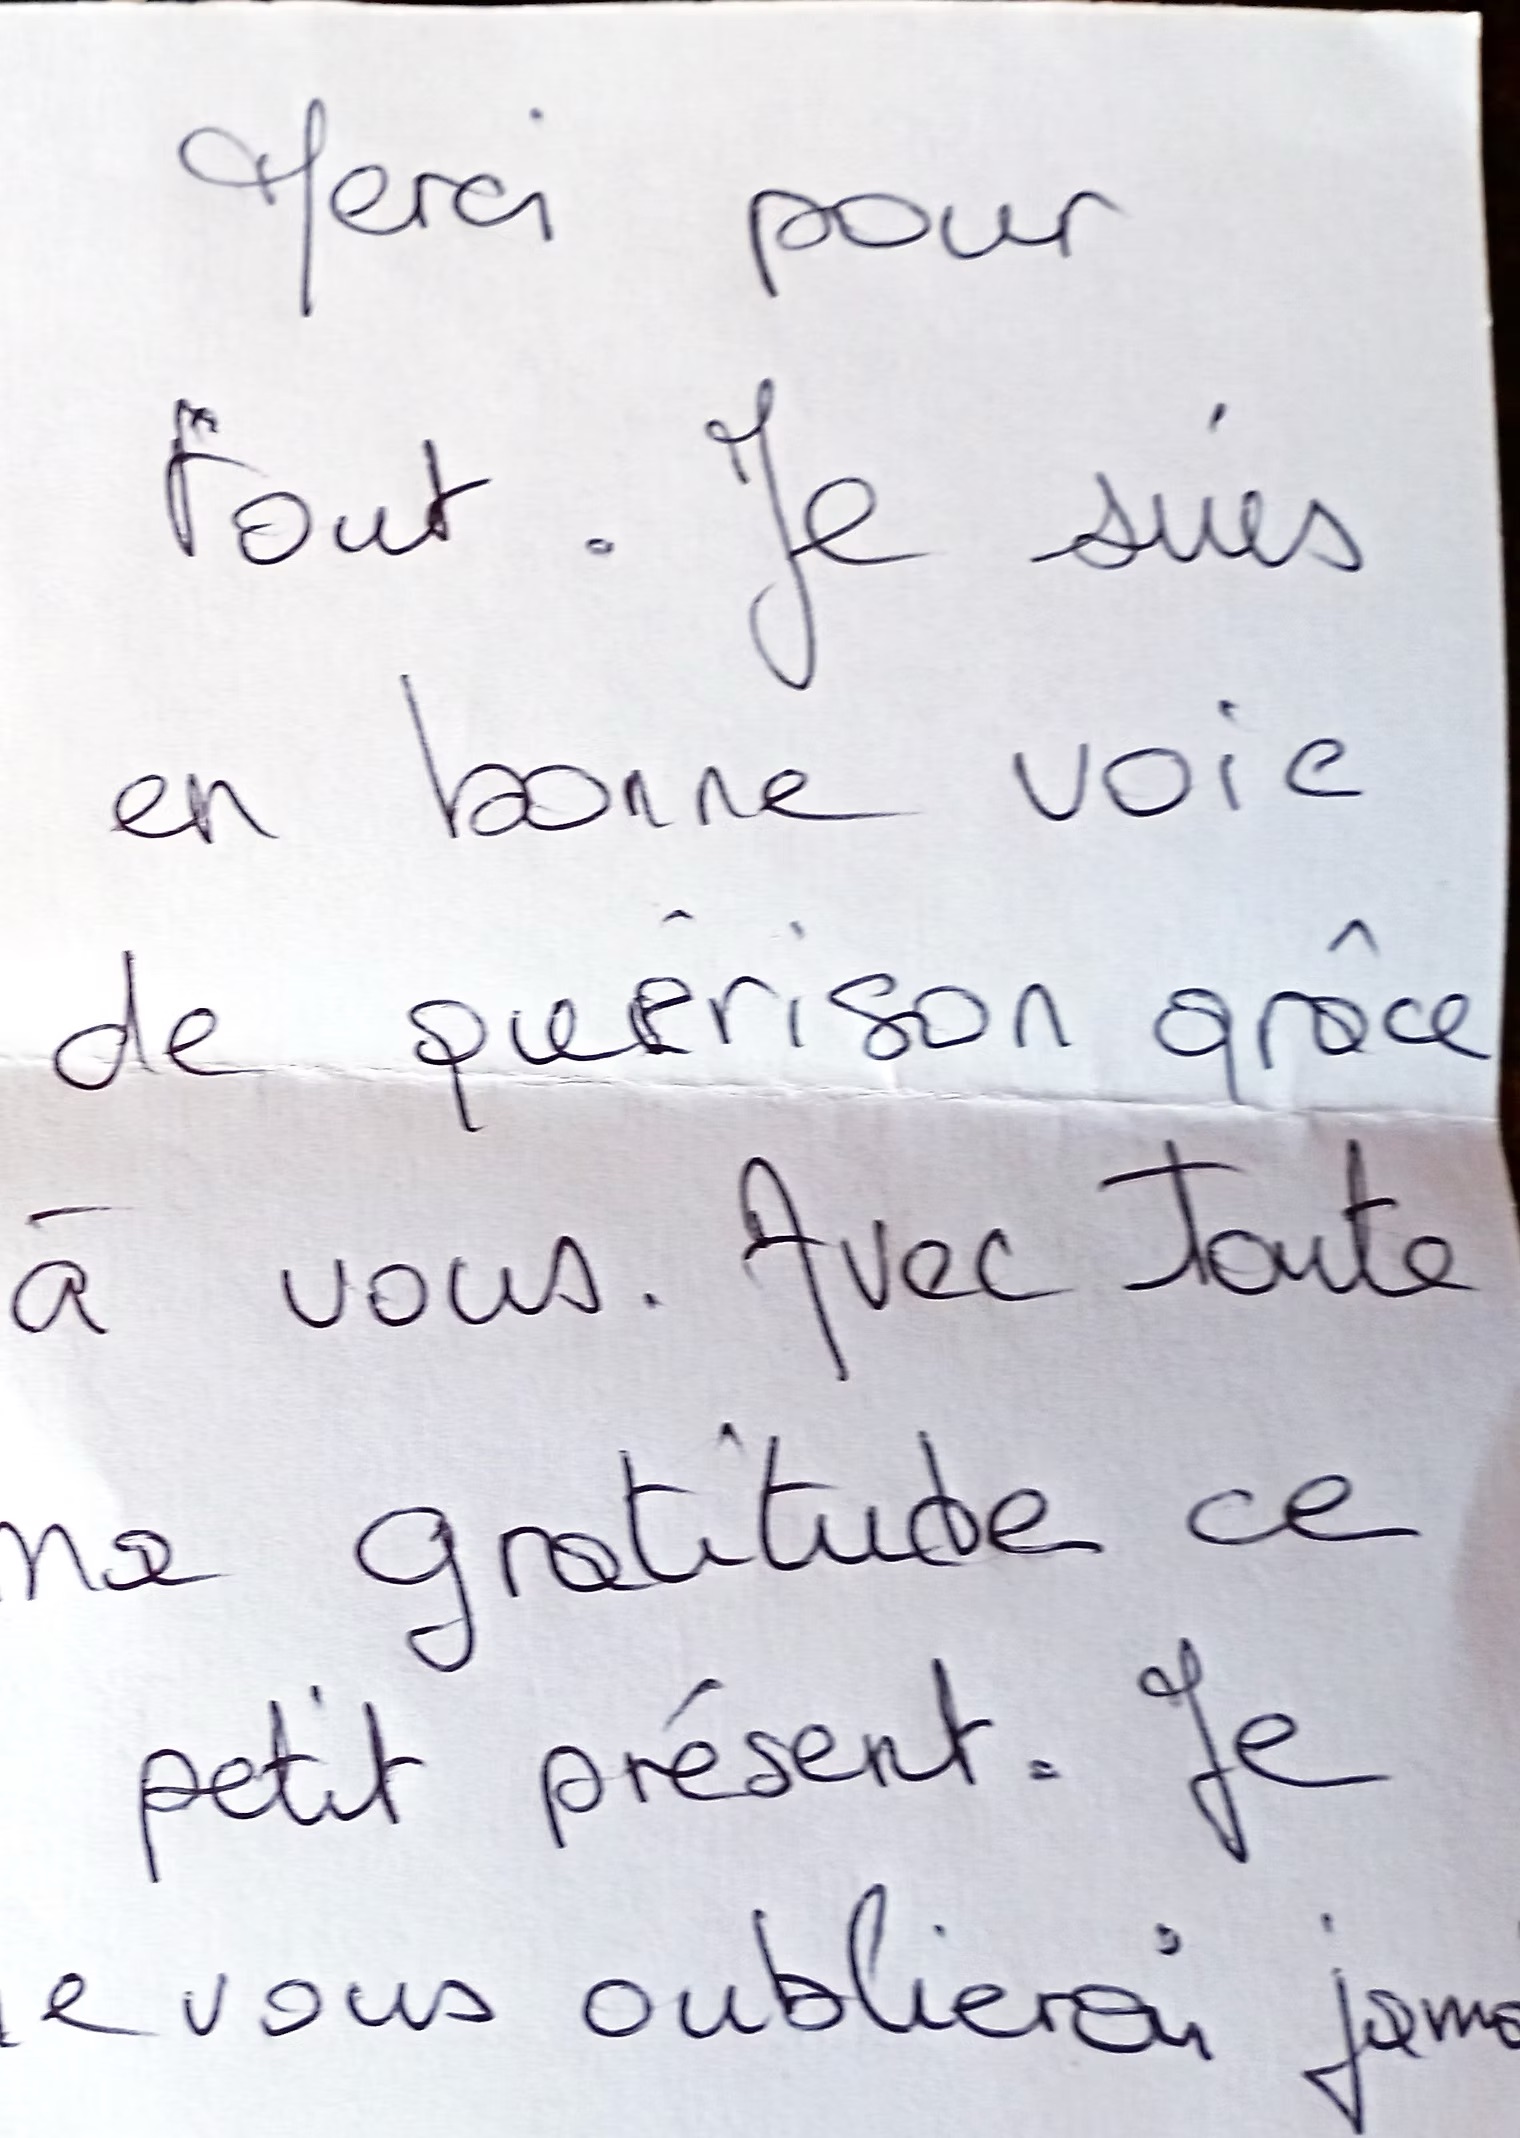 Merci pour
Tout. Je suis
en bonne voie
de guérison grâce
à vous. Avec toute
ma gratitude ce
petit présent. Je
ne vous oublierai jamai